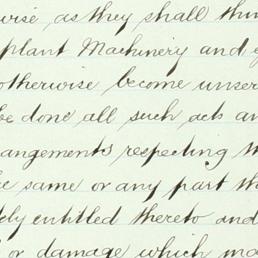 wise as they shall thin
plant Machinery and e
otherwise become unser
be done all such acts an
angements respecting th
he same or any part the
tely entitled thereto and
or damage which ma